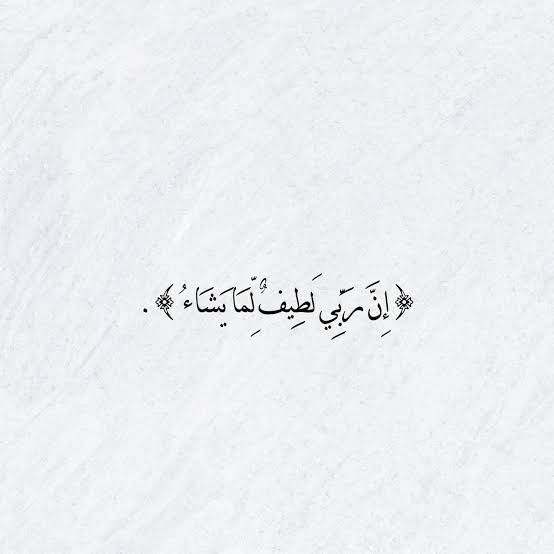 ﴿ إِنَّ رَبِّي لَطِيفٌ لِّمَا يَشَاءُ ﴾ .